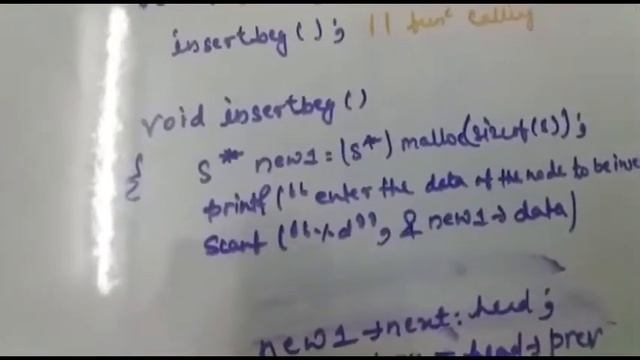 insertbeg(); || func calling
void insertbeg()
{ S* new1=(S*) malloc(sizeof(S));
printf("enter the data of the node to be inse
scanf ("%d", & new1→data)
new1→next=head;
= head→prev